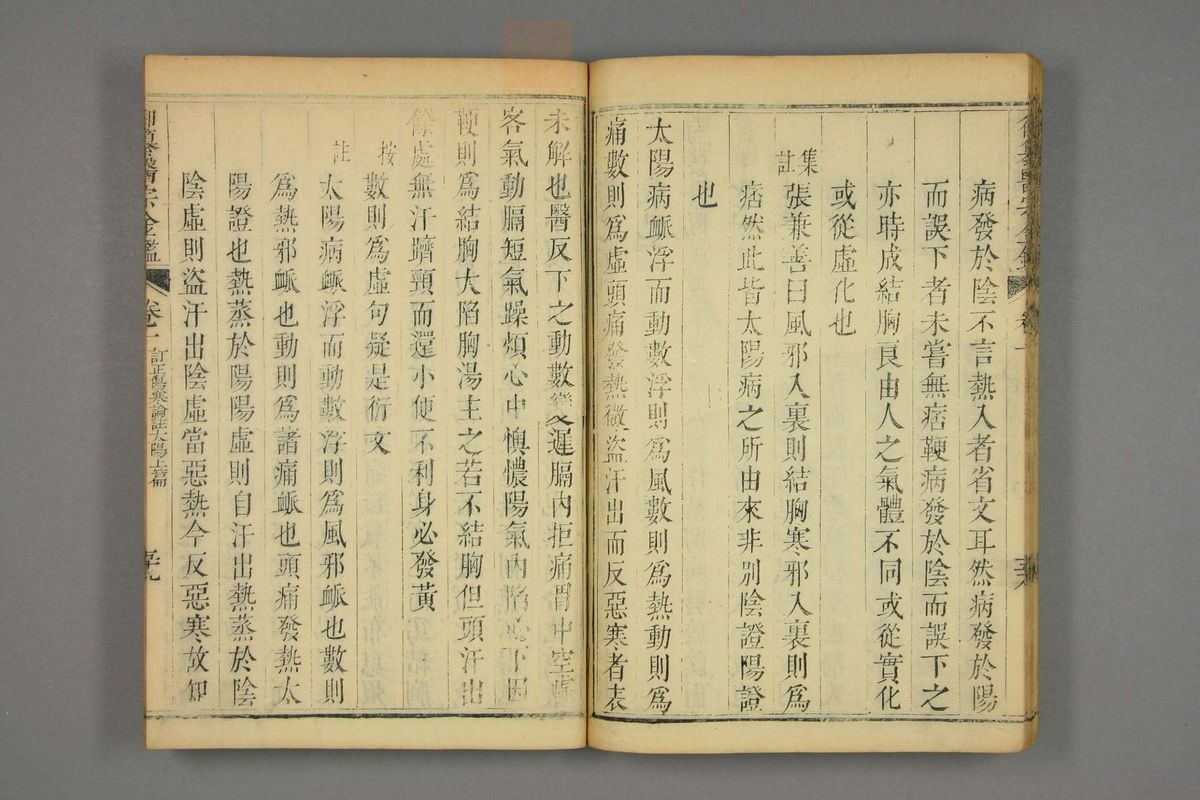 病發於陰不言熱入者省文耳然病發於陽
而誤下者未嘗無痞鞕病發於陰而誤下之
亦時成結胸良由人之氣體不同或從實化
或從虛化也
集註張兼善曰風邪入裏則結胸寒邪入裏則爲
痞然此皆太陽病之所由來非別陰證陽證
也
太陽病脈浮而動數浮則爲風數則爲熱動則爲
痛數則爲虛頭痛發熱微盜汗出而反惡寒者表
未解也醫反下之動數變遲膈內拒痛胃中空虛
客氣動膈短氣躁煩心中懊憹陽氣內陷心下因
鞕則爲結胸大陷胸湯主之若不結胸但頭汗出
餘處無汗躋頸而還小便不利身必發黃
按數則爲虛句疑是衍文
註太陽病脈浮而動數浮則爲風邪脈也數則
爲熱邪脈也動則爲諸痛脈也頭痛發熱太
陽證也熱蒸於陽陽虛則自汗出熱蒸於陰
陰虛則盜汗出陰虛當惡熱今反惡寒故知
御纂醫宗金鑑 卷一 訂正傷寒論註太陽上篇 五十九